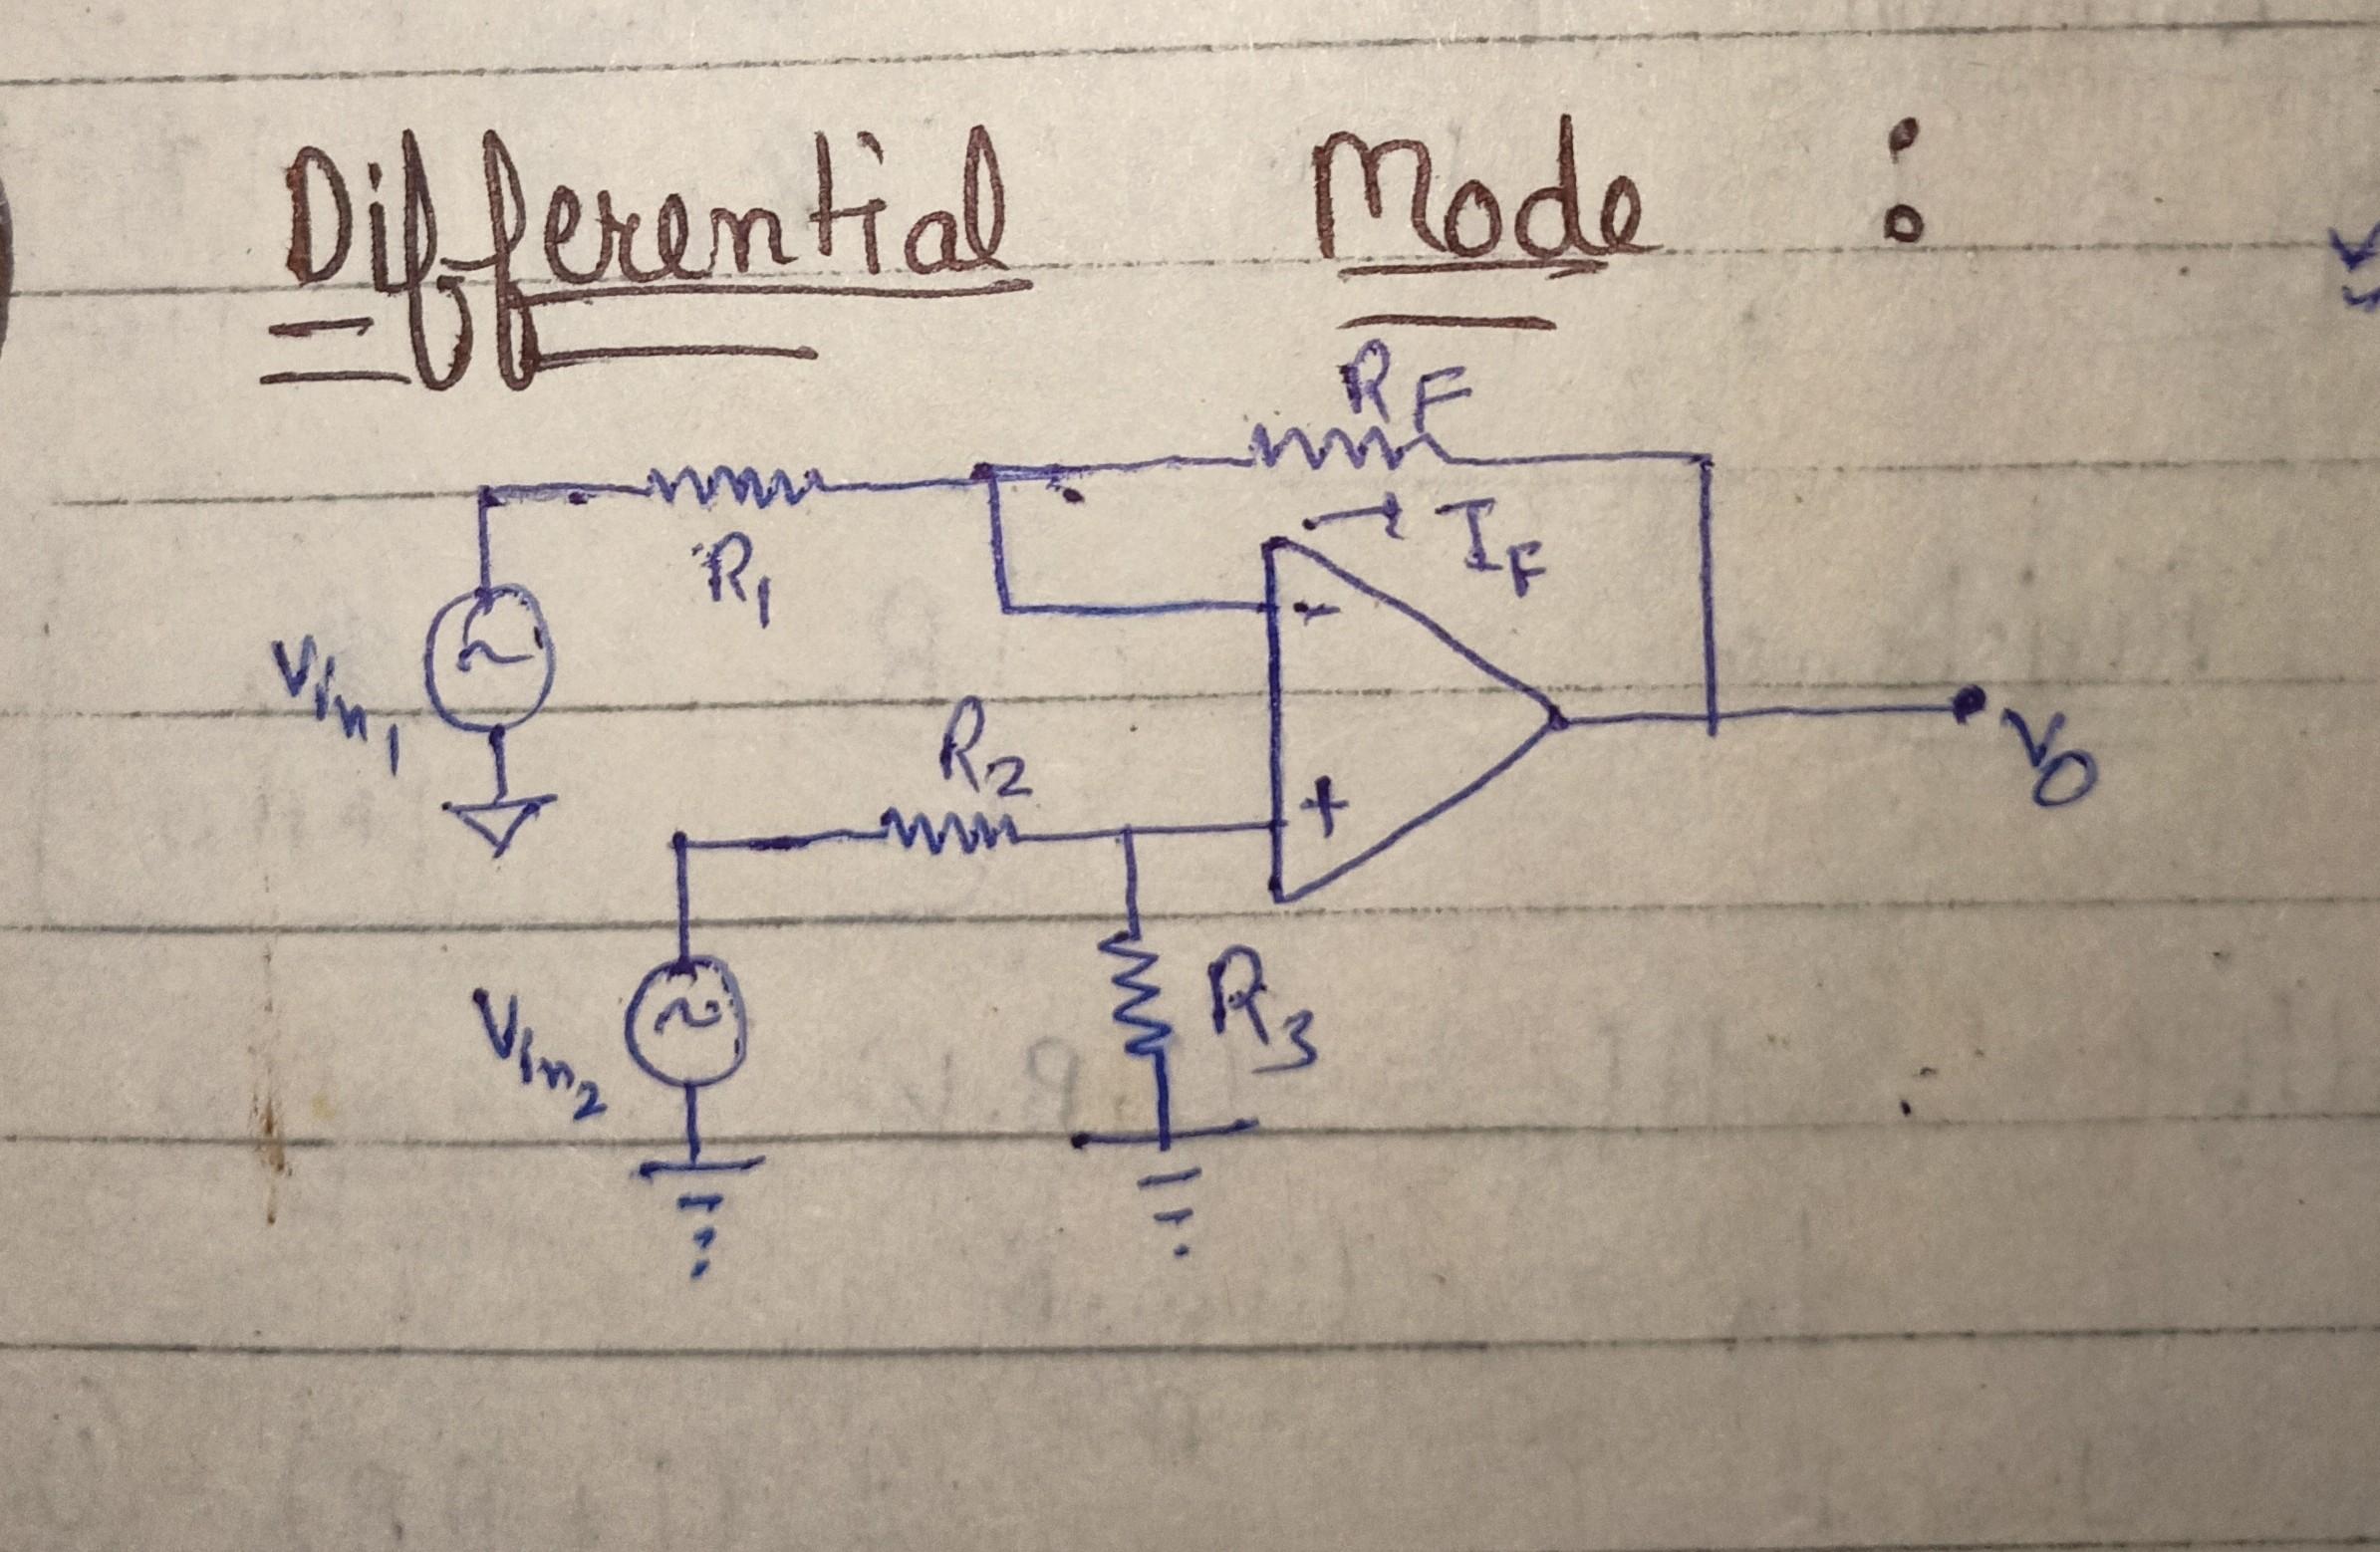 Differential Mode :
RF
IF
R1
Vin1
-
R2
+
VO
Vin2
R3